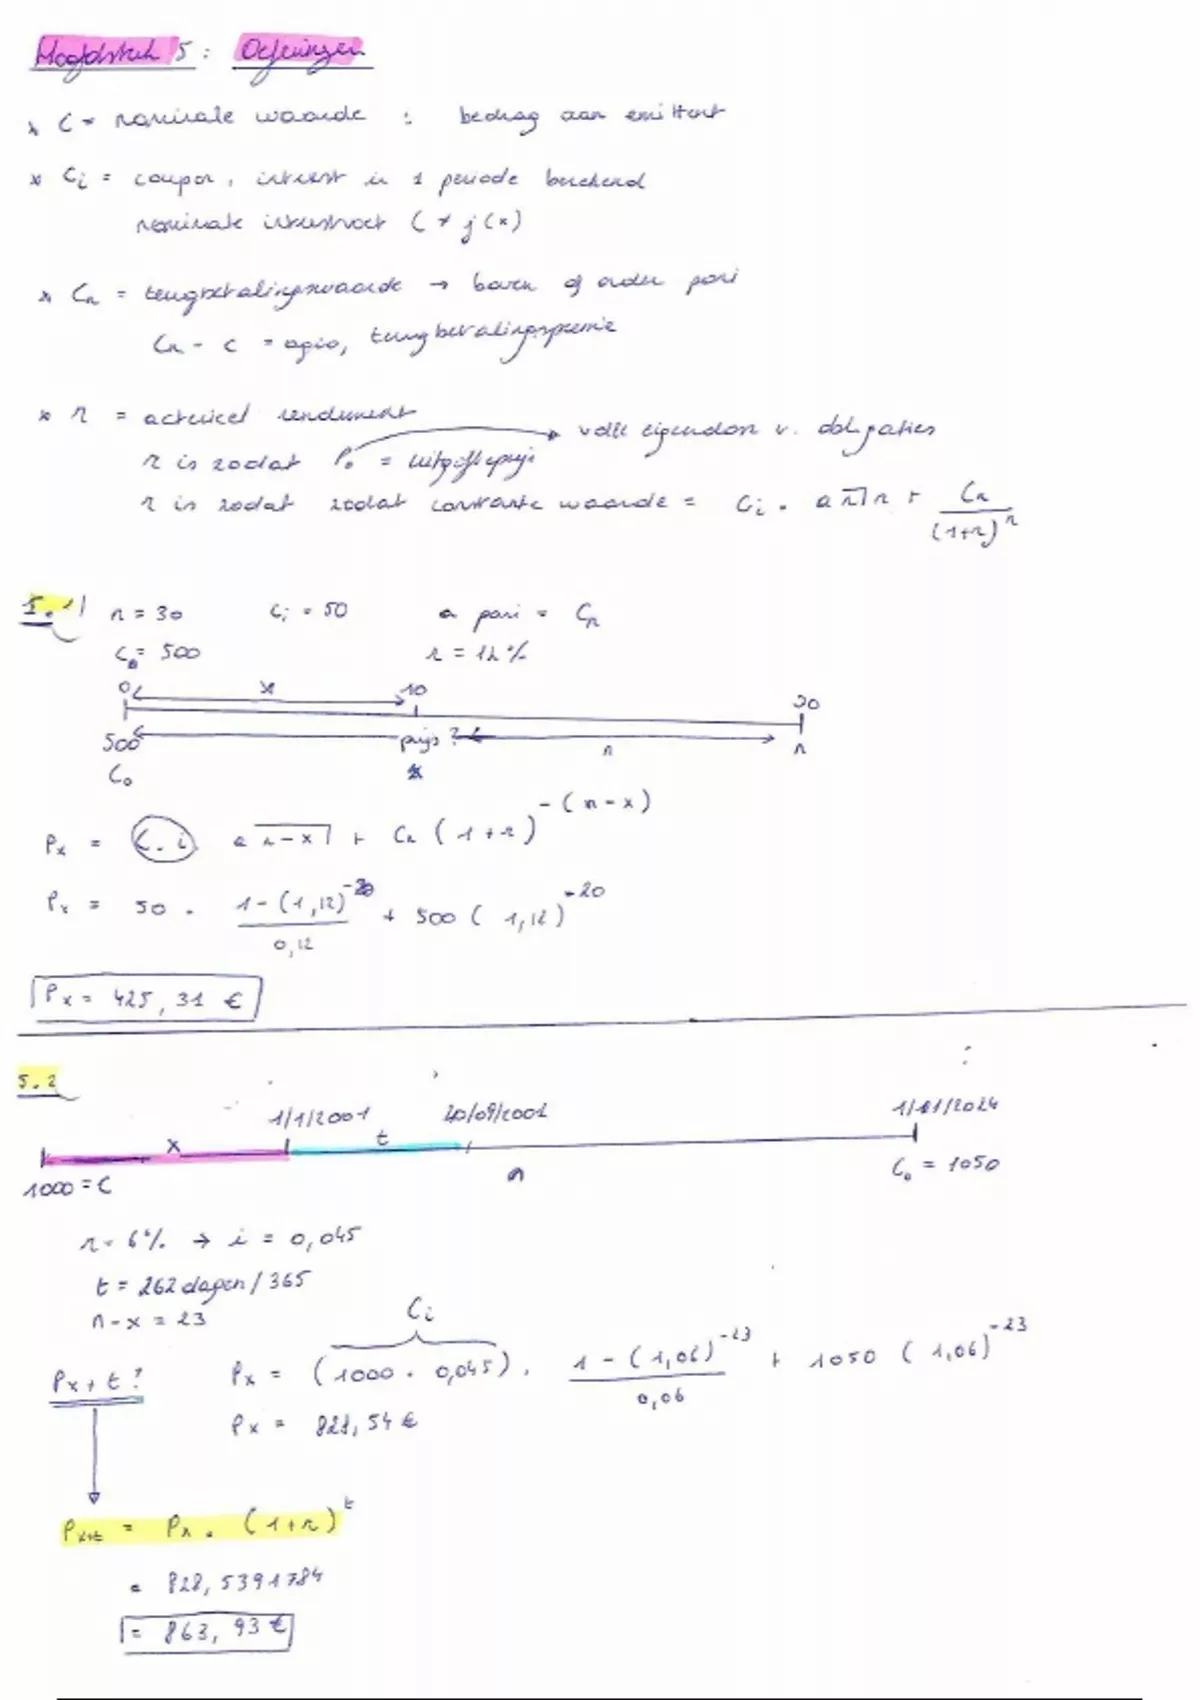 Hoofdstuk 5 : Oefeningen
* C = nominale waarde : bedrag aan emittent
* Ci = coupon, interest in 1 periode berekend
nominale interestvoet ( * j(*)
* Cn = terugbetalingswaarde → boven of onder pari
Cn - C = agio, terugbetalingspremie
* r = actuieel rendement
r is zodat P₀ = uitgifteprijs → volle eigendom v. obligaties
r is zodat zodat contante waarde = Ci . a n̅| r + Cn / (1+r)ⁿ
5.1) n = 30 Ci = 50 a pari = Cn
C₀ = 500 r = 12%
0 x 10 30
500 prijs ? n n
C₀ x
Px = C.i . a n-x| + Cn (1+r)^-(n-x)
Px = 50 . 1-(1,12)^-20 / 0,12 + 500 (1,12)^-20
Px = 425,31 €
5.2
1/1/2001 20/09/2001 1/01/2024
x t
1000 = C n C₀ = 1050
r = 6% → i = 0,045
t = 262 dagen / 365
n-x = 23
Ci
Px+t? Px = (1000 . 0,045) . 1-(1,06)^-23 / 0,06 + 1050 (1,06)^-23
Px = 828,54 €
Px+t = Px . (1+r)^t
= 828,5391784
= 863,93 €